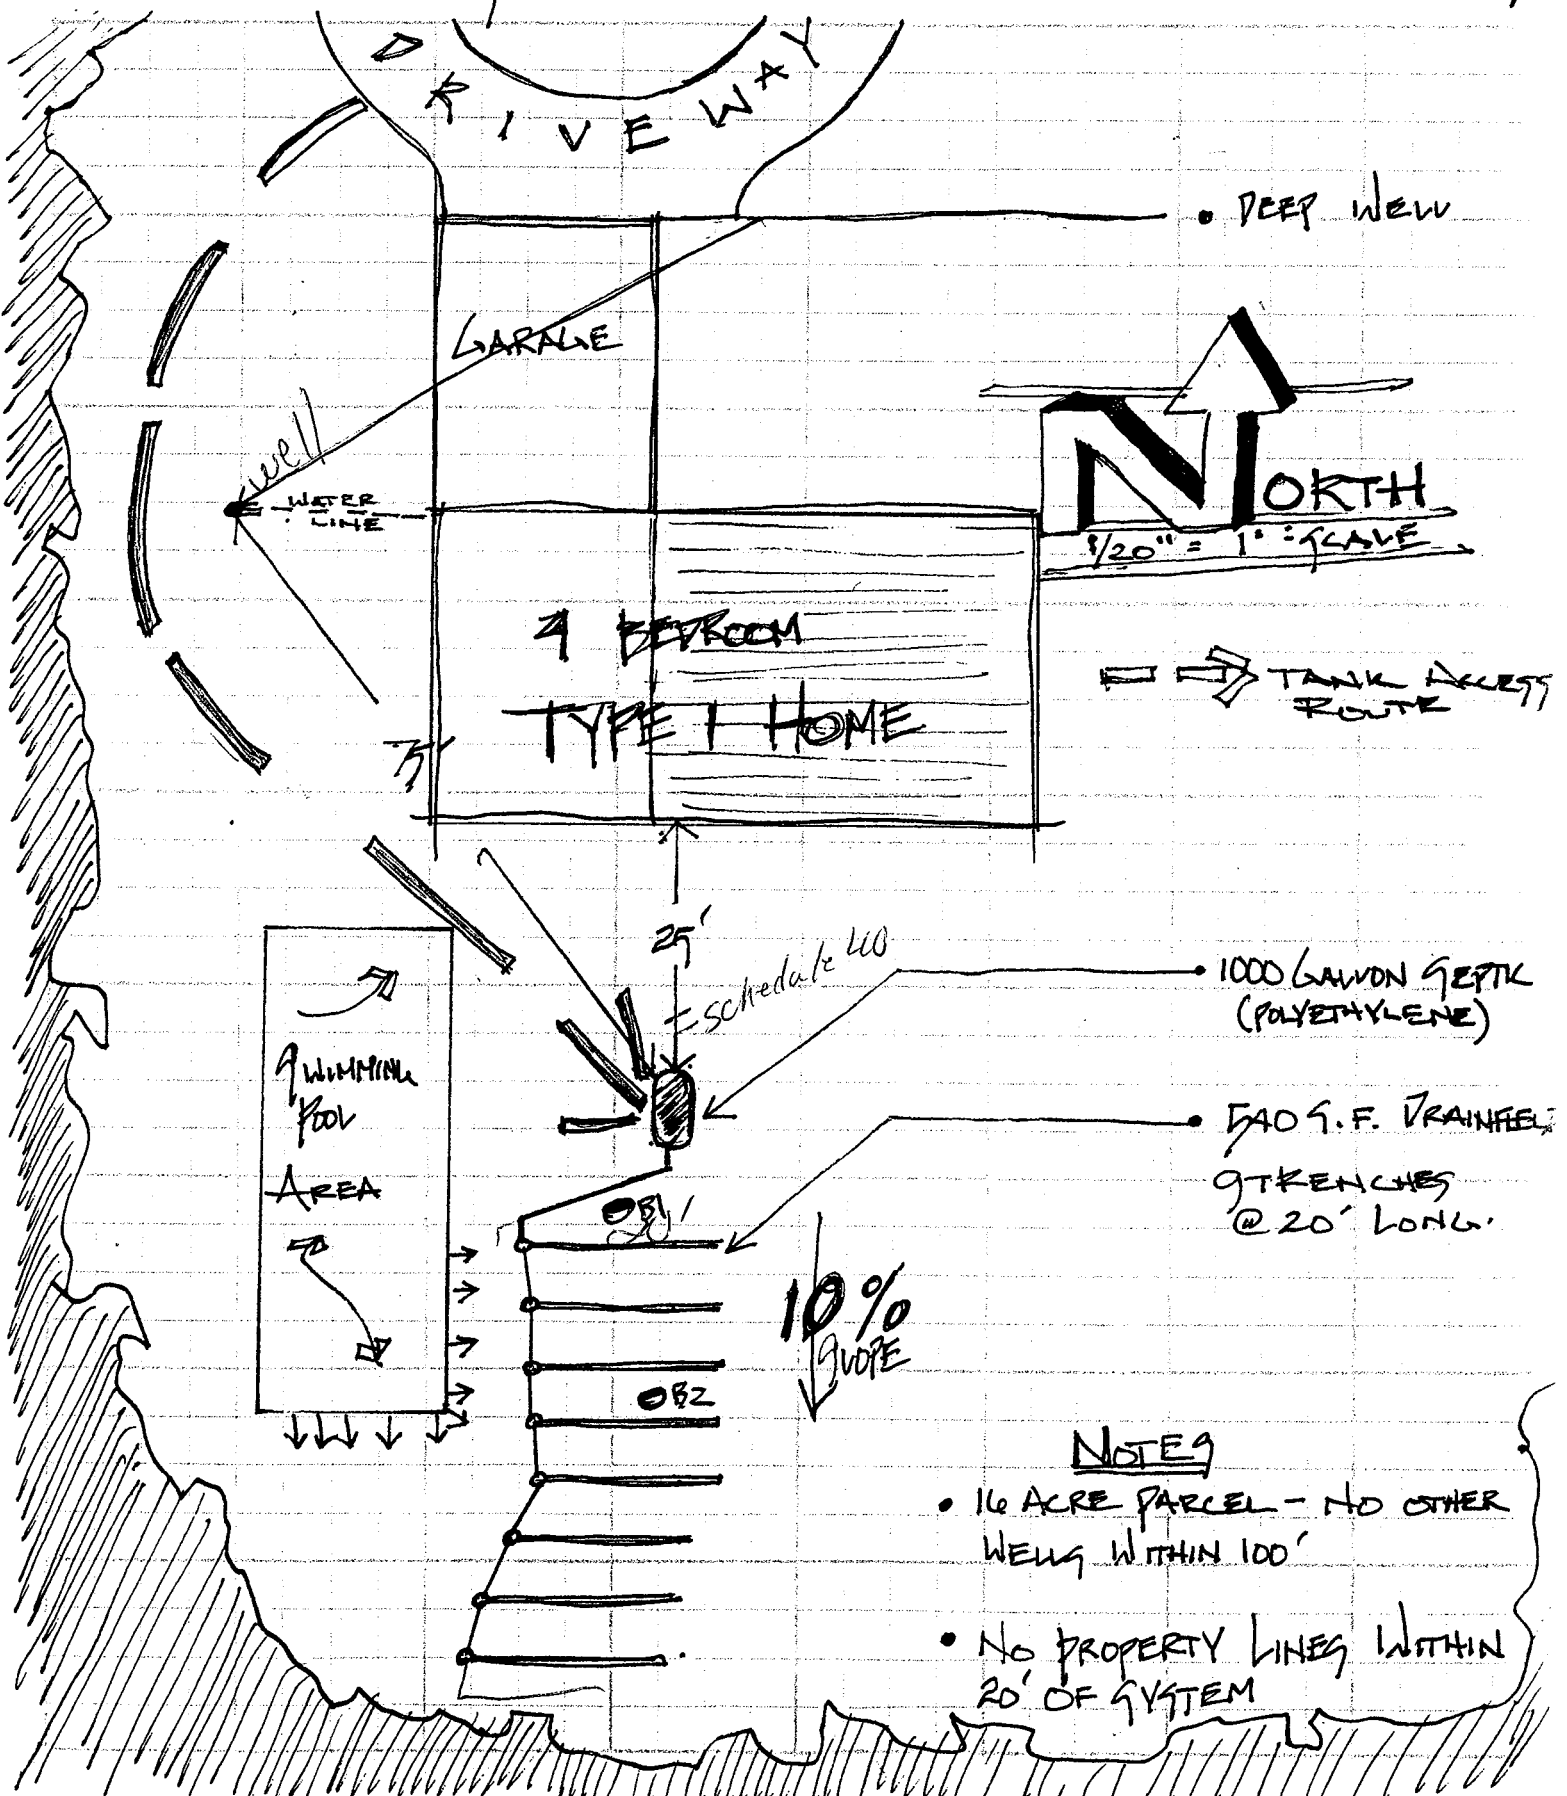 DRIVEWAY
• DEEP WELL
GARAGE
well
WATER
LINE
NORTH
1/20" = 1' SCALE
4 BEDROOM
TYPE 1 HOME
TANK ACCESS
ROUTE
75'
25'
schedule 40
• 1000 GALLON SEPTIC
(POLYETHYLENE)
SWIMMING
POOL
AREA
• 540 S.F. DRAINFIEL
9 TRENCHES
@ 20' LONG.
B1
20'
10%
SLOPE
B2
NOTES
• 16 ACRE PARCEL - NO OTHER
WELLS WITHIN 100'
• NO PROPERTY LINES WITHIN
20' OF SYSTEM